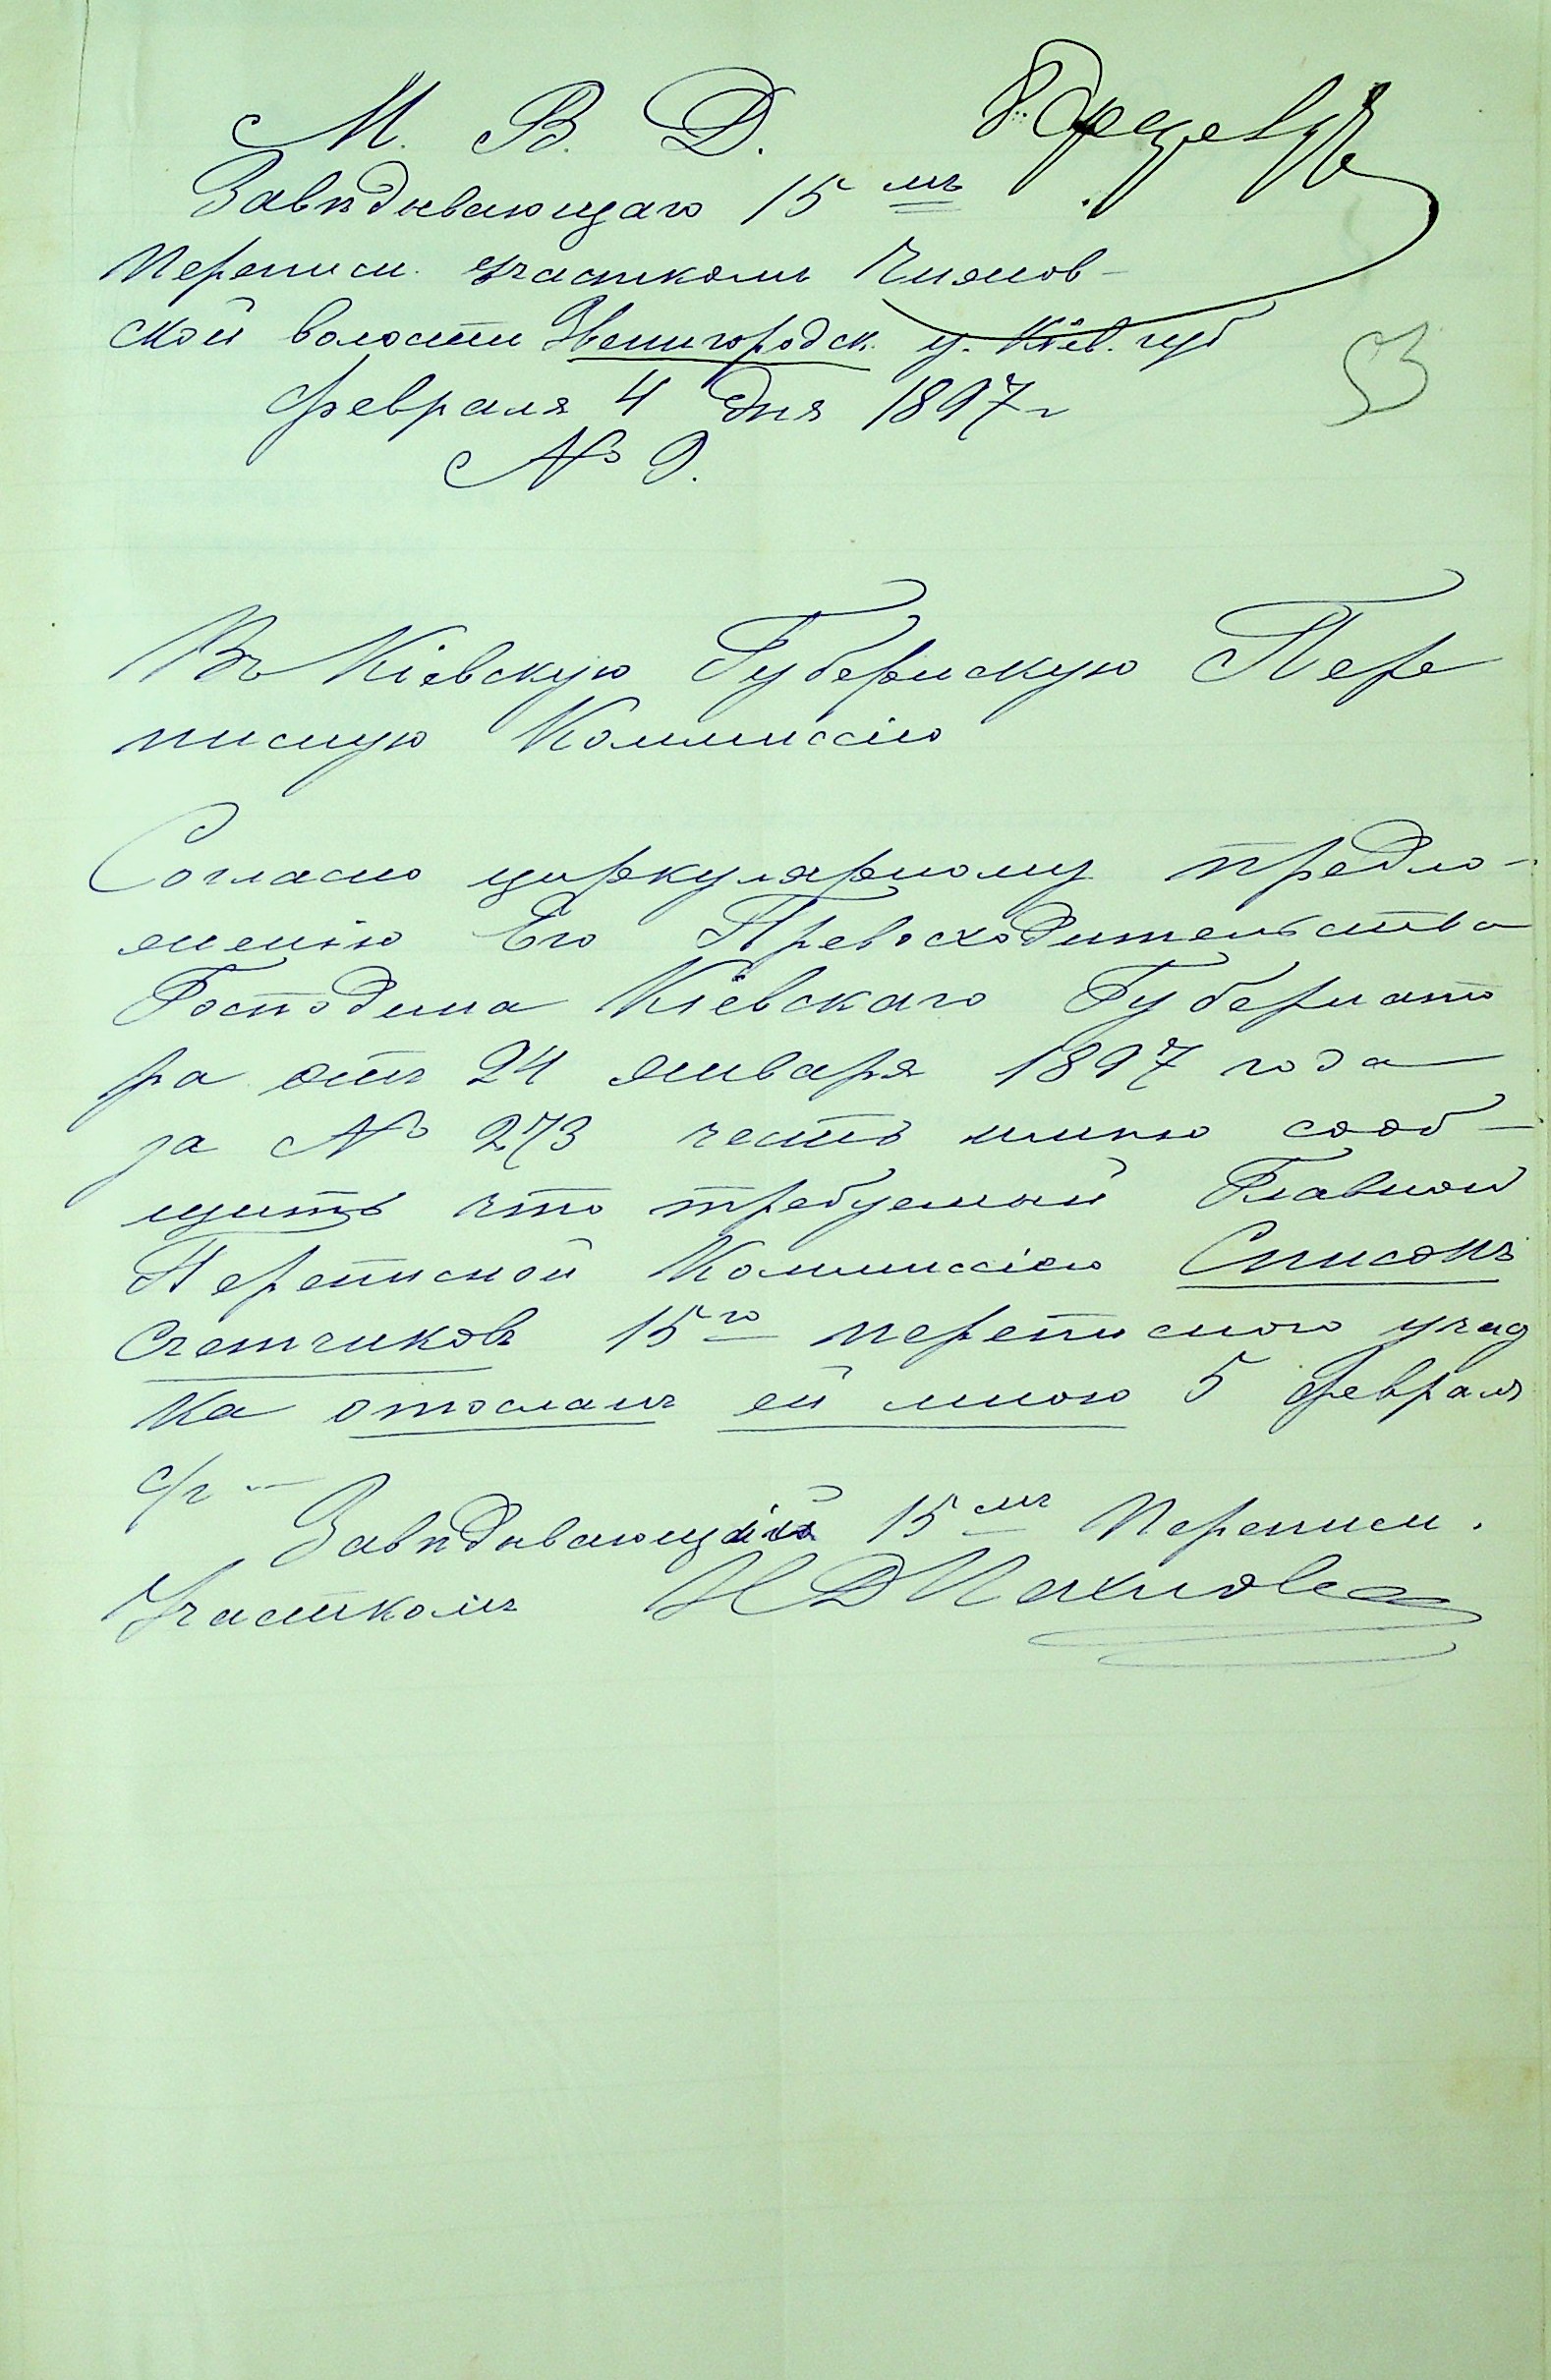 М. В. Д.
Завѣдывающаго 15 мъ
Переписн. участкомъ
ской волости Звенигородск. у. Кіев. губ
Февраля 4 дня 1897 г
№ 9.
53
Въ Кіевскую Губернскую Пере
писную Коммиссію
Согласно циркулярному предло-
женію Его Превосходительства
Господина Кіевскаго Губернато
ра отъ 24 января 1897 года
за № 273 честь имѣю сооб-
щить что требуемый Главной
Переписной Коммиссіею Списокъ
Счетчиковъ 15го переписного
ка отосланъ ей мною 5 Февраля
с/г
Завѣдывающій 15 мъ Переписн.
Участкомъ